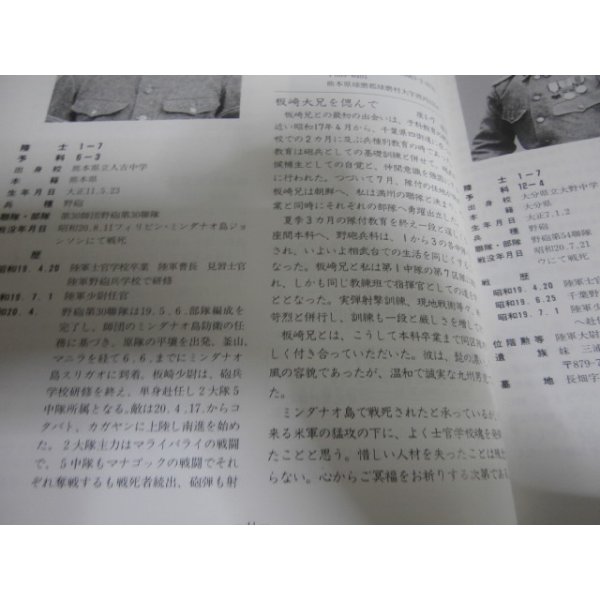 陸士 1-7
予科 6-3
出身校 熊本県立人吉中学
本籍 熊本県
生年月日 大正11.5.23
兵種 野砲
聯隊・部隊 第30師団野砲第30聯隊
戦没年月日 昭和20.8.11フィリピン・ミンダナオ島ジョ
ンソンにて戦死
歴
昭和19.4.20 陸軍士官学校卒業 陸軍曹長 見習士官
陸軍野砲兵学校で研修
昭和19.7.1 陸軍少尉任官
20.4. 野砲第30聯隊は19.5.6.部隊編成を
完了し、師団のミンダナオ島防衛の任
務に基づき、原隊の平壌を出発、釜山、
マニラを経て6.6.までにミンダナオ
島スリガオに到着。板崎少尉は、砲兵
学校研修を終え、単身赴任し2大隊5
中隊所属となる。敵は20.4.17.からコ
タバト、カガヤンに上陸し南進を始め
た。2大隊主力はマライバライの戦闘
で、5中隊もマナゴックの戦闘でそれ
ぞれ奪戦するも戦死者続出、砲弾も射
熊本県球磨郡球磨村大字
板崎大兄を偲んで
板崎兄との最初の出会いは、予科教育の
近い昭和17年4月から、千葉県四街道の
校での2カ月に及ぶ兵種別教育の時であっ
教育は砲兵としての基礎訓練と併せて、
候補生としての自覚と、仲間意識を強固に
に行われた。つづいて7月、隊付の体
板崎兄は朝鮮へ、私は満州の聯隊へと
業と同時にそれぞれの部隊へ勇躍出立した
夏季3カ月の隊付教育を終え一段と逞し
座間本科へ、野砲兵科は、1から3の各中
れ、いよいよ相武台での生活を同じくする
なった。板崎兄と私は第1中隊の第7区隊に
れ、しかも同じ教練班で指揮官としての
ととなった。実弾射撃訓練、現地戦術等々、
苛烈と併行し、訓練も一段と厳しさを増して
板崎兄とは、こうして本科卒業まで同区
しく付き合っていただいた。彼は、髭の濃い
風の容貌であったが、温和で誠実な九州男
った。
ミンダナオ島で戦死されたと承っているが、
来る米軍の猛攻の下に、よく士官学校魂を
たことと思う。惜しい人材を失ったことは残
らない。心からご冥福をお祈りする次第であ
陸士 1-7
予科 12-4
出身校 大分県立大野中学
本籍 大分県
生年月日 大正7.1.2
兵種 野砲
聯隊・部隊 野砲第54聯隊
戦没年月日 昭和20.7.21
ウにて戦死
戦歴
昭和19.4.20 陸軍
昭和19.6.25 千葉野
昭和19.7.1 陸軍少
へ赴任
位階勲等 陸軍大尉
遺族 妹 三浦
〒879-7
墓地 長畑字